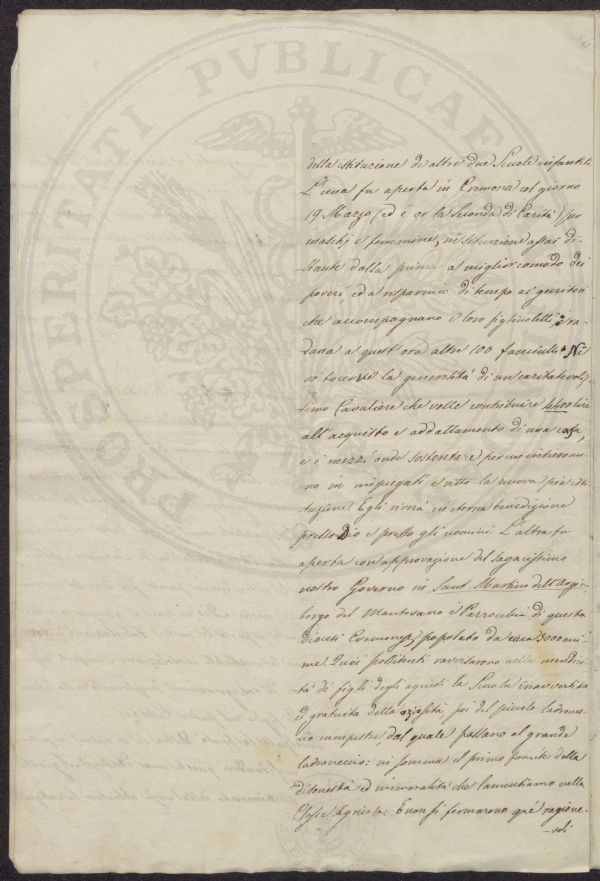 PROSPERITATI PVBLICAE
della istituzione di altre due Scuole infantili.
L'una fu aperta in Cremona col giorno
19 Marzo (ed è or la Seconda di Carità) per
maschj e femmine, in situazione assai di-
stante dalla prima a miglior comodo dei
poveri, ed a risparmio di tempo ai genitori
che accompagnano i loro figliuoletti, e ra-
duna a quest'ora altre 100 fanciulli. Nè
vo' tacere la generosità di un caritatevolis-
simo Cavaliere che volle contribuire 4400 lire
all'acquisto e addattamento di una casa,
e i mezzi onde sostentare per un intiero an-
no in impiegati e vitto la nuova pia isti-
tuzione. Egli vivrà in eterna benedizione
presso Dio e presso gli uomini. L'altra fu
aperta con approvazione del sagacissimo
nostro Governo in Sant. Martino dell'Argin
borgo del Mantovano e Parrocchia di questa
diocesi Cremonese, popolato da circa 3000 ani-
me. Quei possidenti ravvisarono nella mendici-
tà di figli degli agricoli la Scuola inavvertita
e gratuita della oziosità, poi del piccolo ladronec-
cio campestre, dal quale passano al grande
ladroneccio: in somma il primo fomite della
disonestà ed immoralità che lamentiamo nella
Classe Agricola. E non si fermarono que' ragione-
-voli